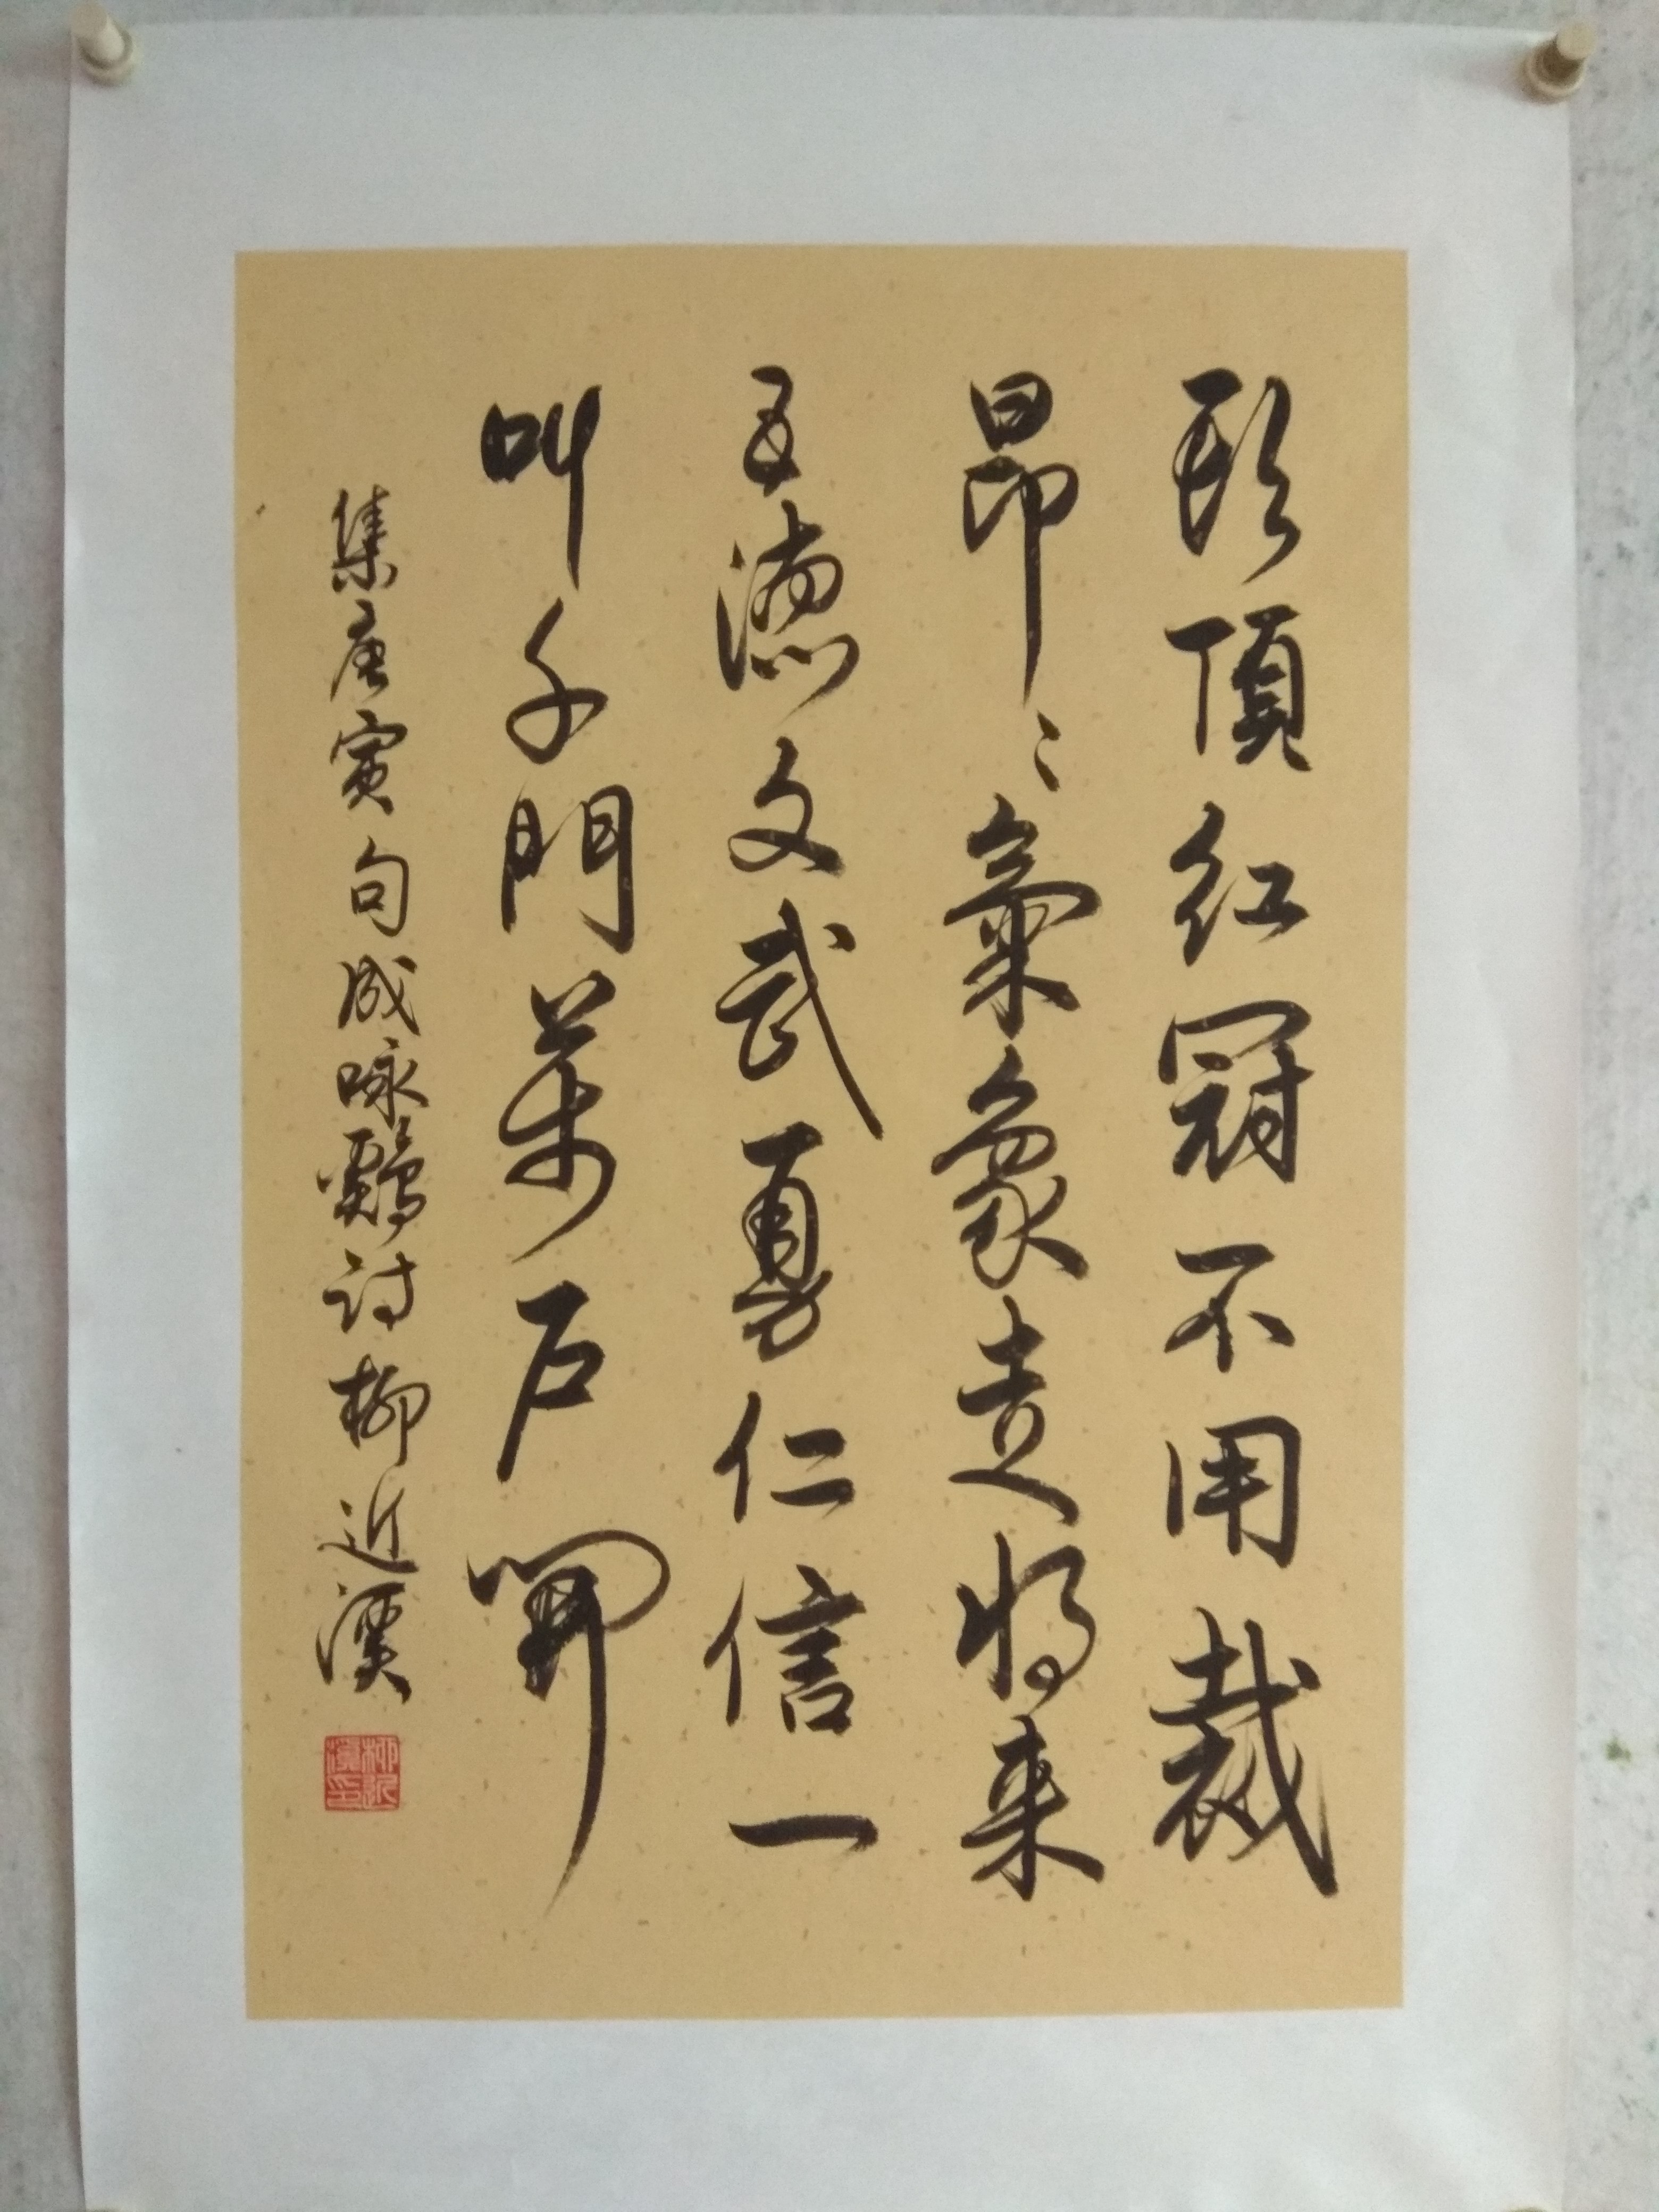 頭頂紅冠不用裁
昂〻氣象走將来
五德文武勇仁信一
叫千門萬戶開
集唐寅句成咏鷄詩柳近溪
柳近溪印